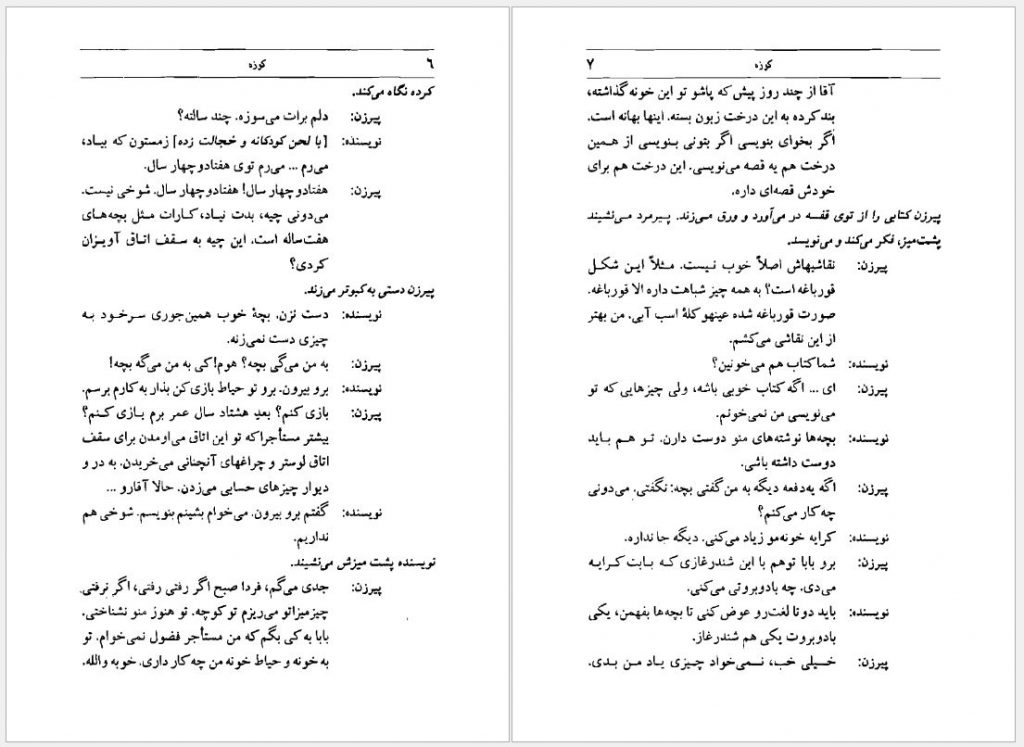 ٦ کوزه
کرده نگاه می‌کند.
پیرزن: دلم برات می‌سوزه. چند سالته؟
نویسنده: [با لحن کودکانه و خجالت زده] زمستون که بیاد،
می‌رم ... می‌رم توی هفتادوچهار سال.
پیرزن: هفتادوچهار سال! هفتادوچهار سال. شوخی نیست.
می‌دونی چیه، بدت نیاد، کارات مثل بچه‌های
هفت‌ساله است. این چیه به سقف اتاق آویزان
کردی؟
پیرزن دستی به کبوتر می‌زند.
نویسنده: دست نزن. بچهٔ خوب همین‌جوری سرخود به
چیزی دست نمی‌زنه.
پیرزن: به من می‌گی بچه؟ هوم! کی به من می‌گه بچه!
نویسنده: برو بیرون. برو تو حیاط بازی کن بذار به کارم برسم.
پیرزن: بازی کنم؟ بعدِ هشتاد سال عمر برم بازی کنم؟
بیشتر مستأجرا که تو این اتاق می‌اومدن برای سقف
اتاق لوستر و چراغهای آنچنانی می‌خریدن. به در و
دیوار چیزهای حسابی می‌زدن. حالا آقارو ...
نویسنده: گفتم برو بیرون. می‌خوام بشینم بنویسم. شوخی هم
نداریم.
نویسنده پشت میزش می‌نشیند.
پیرزن: جدی می‌گم، فردا صبح اگر رفتی رفتی، اگر نرفتی
چیزمیزاتو می‌ریزم تو کوچه. تو هنوز منو نشناختی.
بابا به کی بگم که من مستأجر فضول نمی‌خوام. تو
به خونه و حیاط خونه من چه کار داری. خوبه والله.
کوزه ۷
آقا از چند روز پیش که پاشو تو این خونه گذاشته،
بند کرده به این درخت زبون بسته. اینها بهانه است.
اگر بخوای بنویسی اگر بتونی بنویسی از همین
درخت هم یه قصه می‌نویسی. این درخت هم برای
خودش قصه‌ای داره.
پیرزن کتابی را از توی قفسه در می‌آورد و ورق می‌زند. پیرمرد می‌نشیند
پشت‌میز، فکر می‌کند و می‌نویسد.
پیرزن: نقاشیهاش اصلاً خوب نیست. مثلاً این شکل
قورباغه است؟ به همه چیز شباهت داره الا قورباغه.
صورت قورباغه شده عینهو کلهٔ اسب آبی. من بهتر
از این نقاشی می‌کشم.
نویسنده: شما کتاب هم می‌خونین؟
پیرزن: ای ... اگه کتاب خوبی باشه، ولی چیزهایی که تو
می‌نویسی من نمی‌خونم.
نویسنده: بچه‌ها نوشته‌های منو دوست دارن. تو هم باید
دوست داشته باشی.
پیرزن: اگه یه‌دفعه دیگه به من گفتی بچه: نگفتی. می‌دونی
چه کار می‌کنم؟
نویسنده: کرایه خونه‌مو زیاد می‌کنی. دیگه جا نداره.
پیرزن: برو بابا توهم با این شندرغازی که بابت کرایه
می‌دی. چه بادوبروتی می‌کنی.
نویسنده: باید دو تا لغت‌رو عوض کنی تا بچه‌ها بفهمن، یکی
بادوبروت یکی هم شندرغاز.
پیرزن: خیلی خب، نمی‌خواد چیزی یاد من بدی.